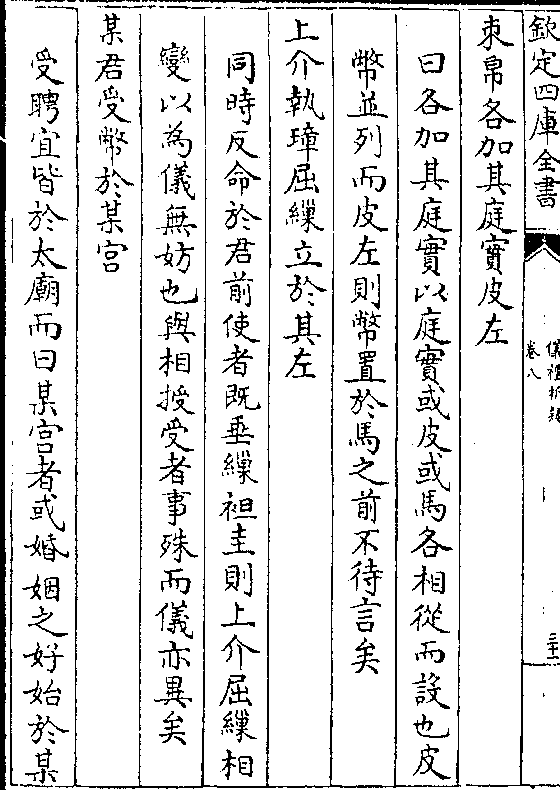 欽定四庫全書
儀禮析疑
卷八
三十一
束帛各加其庭實皮左
曰各加其庭實以庭實或皮或馬各相從而設也皮
幣並列而皮左則幣置於馬之前不待言矣
上介執璋屈繅立於其左
同時反命於君前使者既垂繅袒圭則上介屈繅相
變以為儀無妨也與相授受者事殊而儀亦異矣
某君受幣於某宮
受聘宜皆於太廟而曰某宮者或婚姻之好始於某